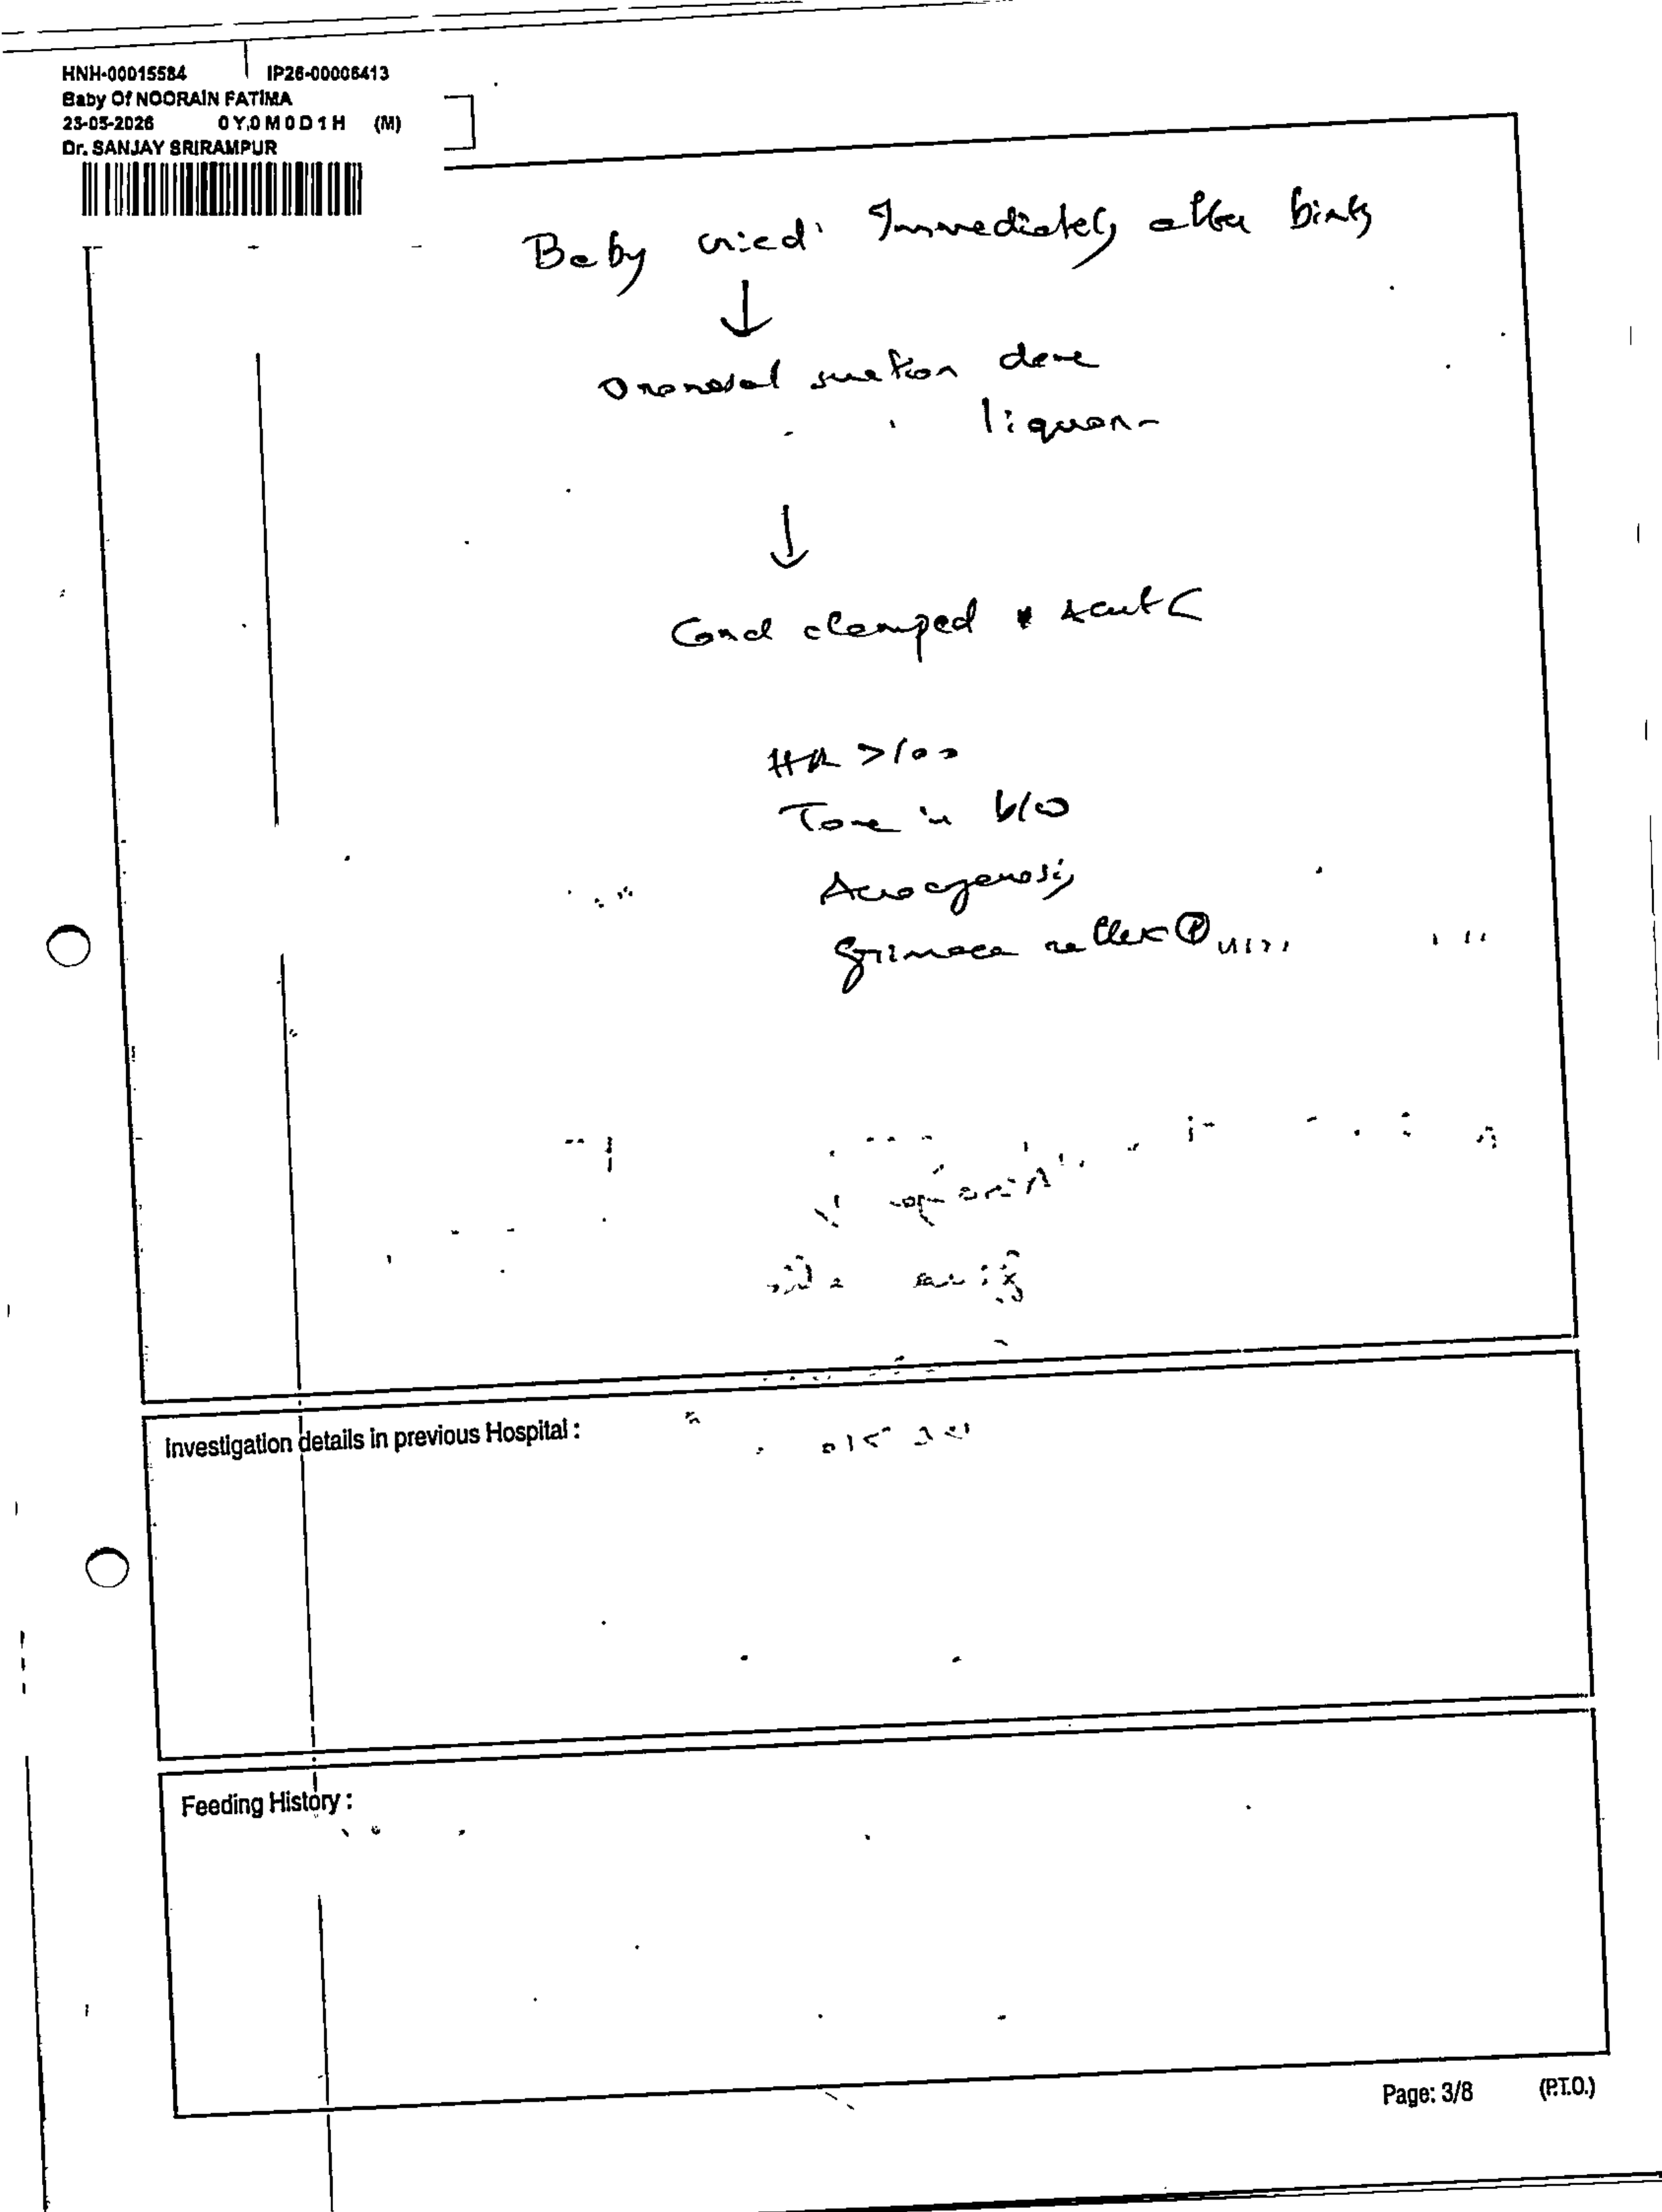 HNH-00015584 IP26-00006413
Baby Of NOORAIN FATIMA
23-05-2026 0Y,0M0D1H (M)
Dr. SANJAY SRIRAMPUR
Baby cried Immediately after birth
↓
Oronasal suction done
liquor
↓
Cord clamped & cut
HR >100
Tone
Acrocyanosis
Grimace reflex Ⓟ
Investigation details in previous Hospital :
Feeding History :
Page: 3/8 (P.T.O.)